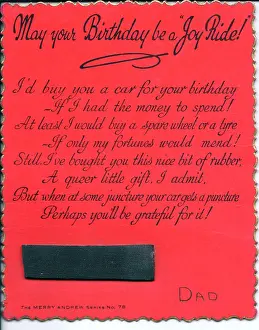 May your Birthday be a "Joy Ride!"
I'd buy you a car for your birthday
—If I had the money to spend!
At least I would buy a spare wheel or a tyre
—If only my fortunes would mend!
Still I've bought you this nice bit of rubber,
A queer little gift, I admit,
But when at some juncture your car gets a puncture
Perhaps you'll be grateful for it!
The MERRY ANDREW Series No. 78
DAD